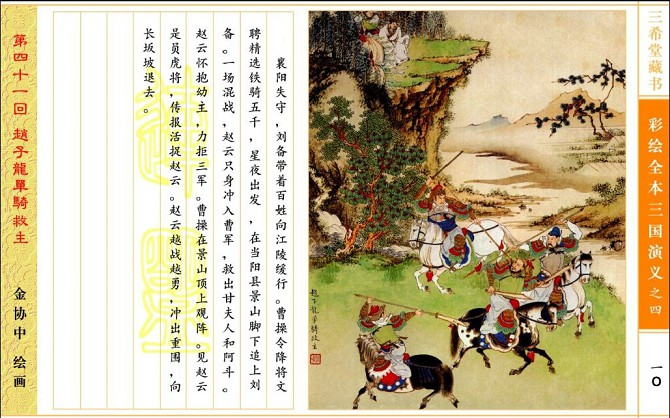 三希堂藏书
彩绘全本三国演义之四
一〇
趙子龍單騎救主
襄阳失守，刘备带着百姓向江陵缓行。曹操令降将文
聘精选铁骑五千，星夜出发，在当阳县景山脚下追上刘
备。一场混战，赵云只身冲入曹军，救出甘夫人和阿斗。
赵云怀抱幼主，力拒三军。曹操在景山顶上观阵。见赵云
是员虎将，传报活捉赵云。赵云越战越勇，冲出重围，向
长坂坡退去。
第四十一回 趙子龍單騎救主
金协中 绘画